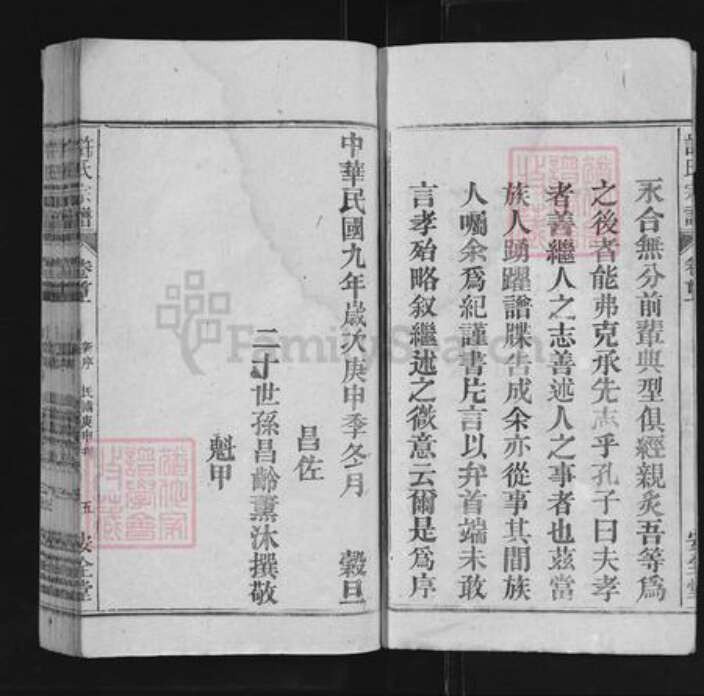 永合無分前輩典型俱經親炙吾等爲
之後者能弗克承先志乎孔子曰夫孝
者善繼人之志善述人之事者也茲當
族人踴躍譜牒告成余亦從事其間族
人囑余爲紀謹書片言以弁首端未敢
言孝殆略叙繼述之微意云爾是爲序
中華民國九年歲次庚申季冬月 穀旦
昌佐
二十世孫昌齡薰沐撰敬
魁甲
許氏宗譜 卷首
民國庚申
五 安全堂
FamilySearch